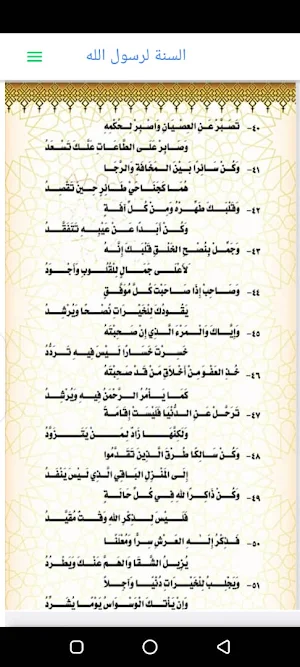 السنة لرسول الله
٤٠- تَصَبَّرْ عَنِ العِصْيَانِ وَاصْبِرْ لِحُكْمِهِ
وَصَابِرْ عَلَى الطَّاعَاتِ عَلَّكَ تَسْعَدُ
٤١- وَكُنْ سَائِرًا بَيْنَ الْمَخَافَةِ وَالرَّجَا
هُمَا كَجَنَاحَيْ طَائِرٍ حِينَ تَقْصِدُ
٤٢- وَقَلْبَكَ طَهِّرْهُ وَمِنْ كُلِّ آفَةٍ
وَكُنْ أَبَدًا عَنْ عَيْبِهِ تَتَفَقَّدُ
٤٣- وَجَمِّلْ بِنُصْحِ الخَلْقِ قَلْبَكَ إِنَّهُ
لَأَعْلَى جَمَالٍ لِلْقُلُوبِ وَأَجْوَدُ
٤٤- وَصَاحِبْ إِذَا صَاحَبْتَ كُلَّ مُوَفَّقٍ
يَقُودُكَ لِلْخَيْرَاتِ نُصْحًا وَيُرْشِدُ
٤٥- وَإِيَّاكَ وَالْمَرْءَ الَّذِي إِنْ صَحِبْتَهُ
خَسِرْتَ خَسَارًا لَيْسَ فِيهِ تَرَدُّدُ
٤٦- خُذِ العَفْوَ مِنْ أَخْلَاقِ مَنْ قَدْ صَحِبْتَهُ
كَمَا يَأْمُرُ الرَّحْمَنُ فِيهِ وَيُرْشِدُ
٤٧- تَرَحَّلْ عَنِ الدُّنْيَا فَلَيْسَتْ إِقَامَةً
وَلَكِنَّهَا زَادٌ لِمَنْ يَتَزَوَّدُ
٤٨- وَكُنْ سَالِكًا طُرُقَ الَّذِينَ تَقَدَّمُوا
إِلَى الْمَنْزِلِ البَاقِي الَّذِي لَيْسَ يَنْفَدُ
٤٩- وَكُنْ ذَاكِرًا لِلهِ فِي كُلِّ حَالَةٍ
فَلَيْسَ لِذِكْرِ اللهِ وَقْتٌ مُقَيَّدُ
٥٠- فَذِكْرُ إِلَهِ العَرْشِ سِرًّا وَمُعْلَنًا
يُزِيلُ الشَّقَا وَالهَمَّ عَنْكَ وَيَطْرُدُ
٥١- وَيَجْلِبُ لِلْخَيْرَاتِ دُنْيَا وَآجِلًا
وَإِنْ يَأْتِكَ الْوَسْوَاسُ يَوْمًا يُشَرِّدُ